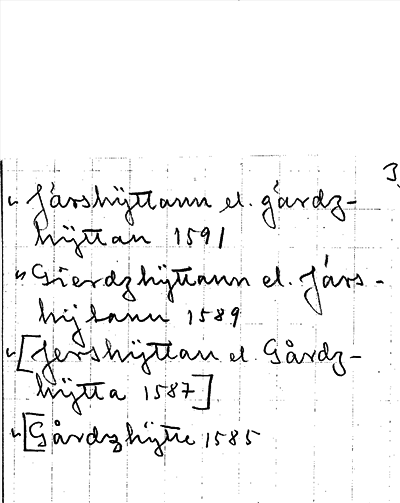 3.
" Jårshÿttann el. gårdz-
hÿttan 1591
" Gierdzhÿttann el. Jårs-
hÿtann 1589
" [Jershÿttan el. Gårdz-
hÿtta 1587]
" [Gårdzhÿtte 1585